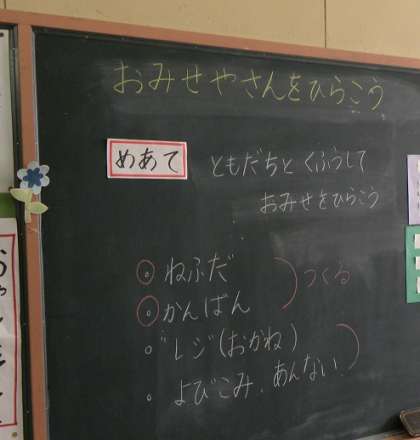 おみせやさんをひらこう
めあて
ともだちと くふうして
おみせをひらこう
ねふだ
かんばん
つくる
レジ(おかね)
よびこみ、あんない